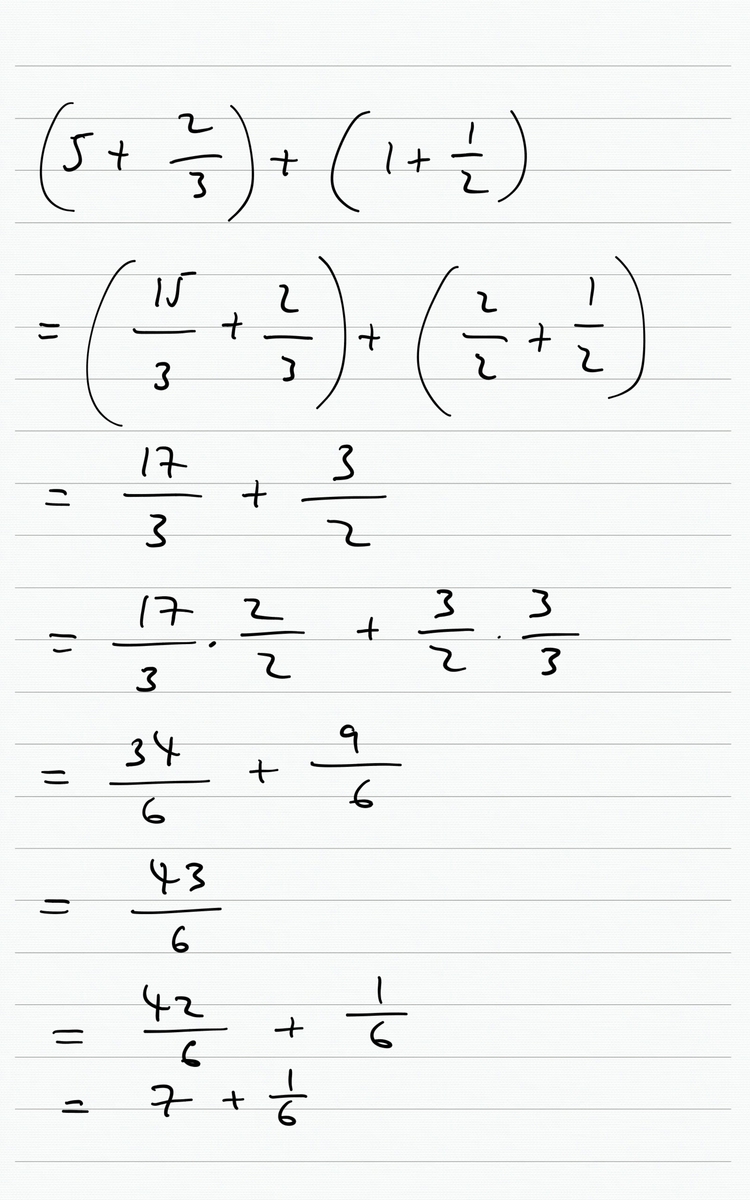 (5 + 2/3) + (1 + 1/2)
= (15/3 + 2/3) + (2/2 + 1/2)
= 17/3 + 3/2
= 17/3 · 2/2 + 3/2 · 3/3
= 34/6 + 9/6
= 43/6
= 42/6 + 1/6
= 7 + 1/6